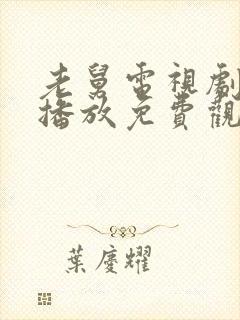 老舅電視劇
播放免費觀
葉慶耀